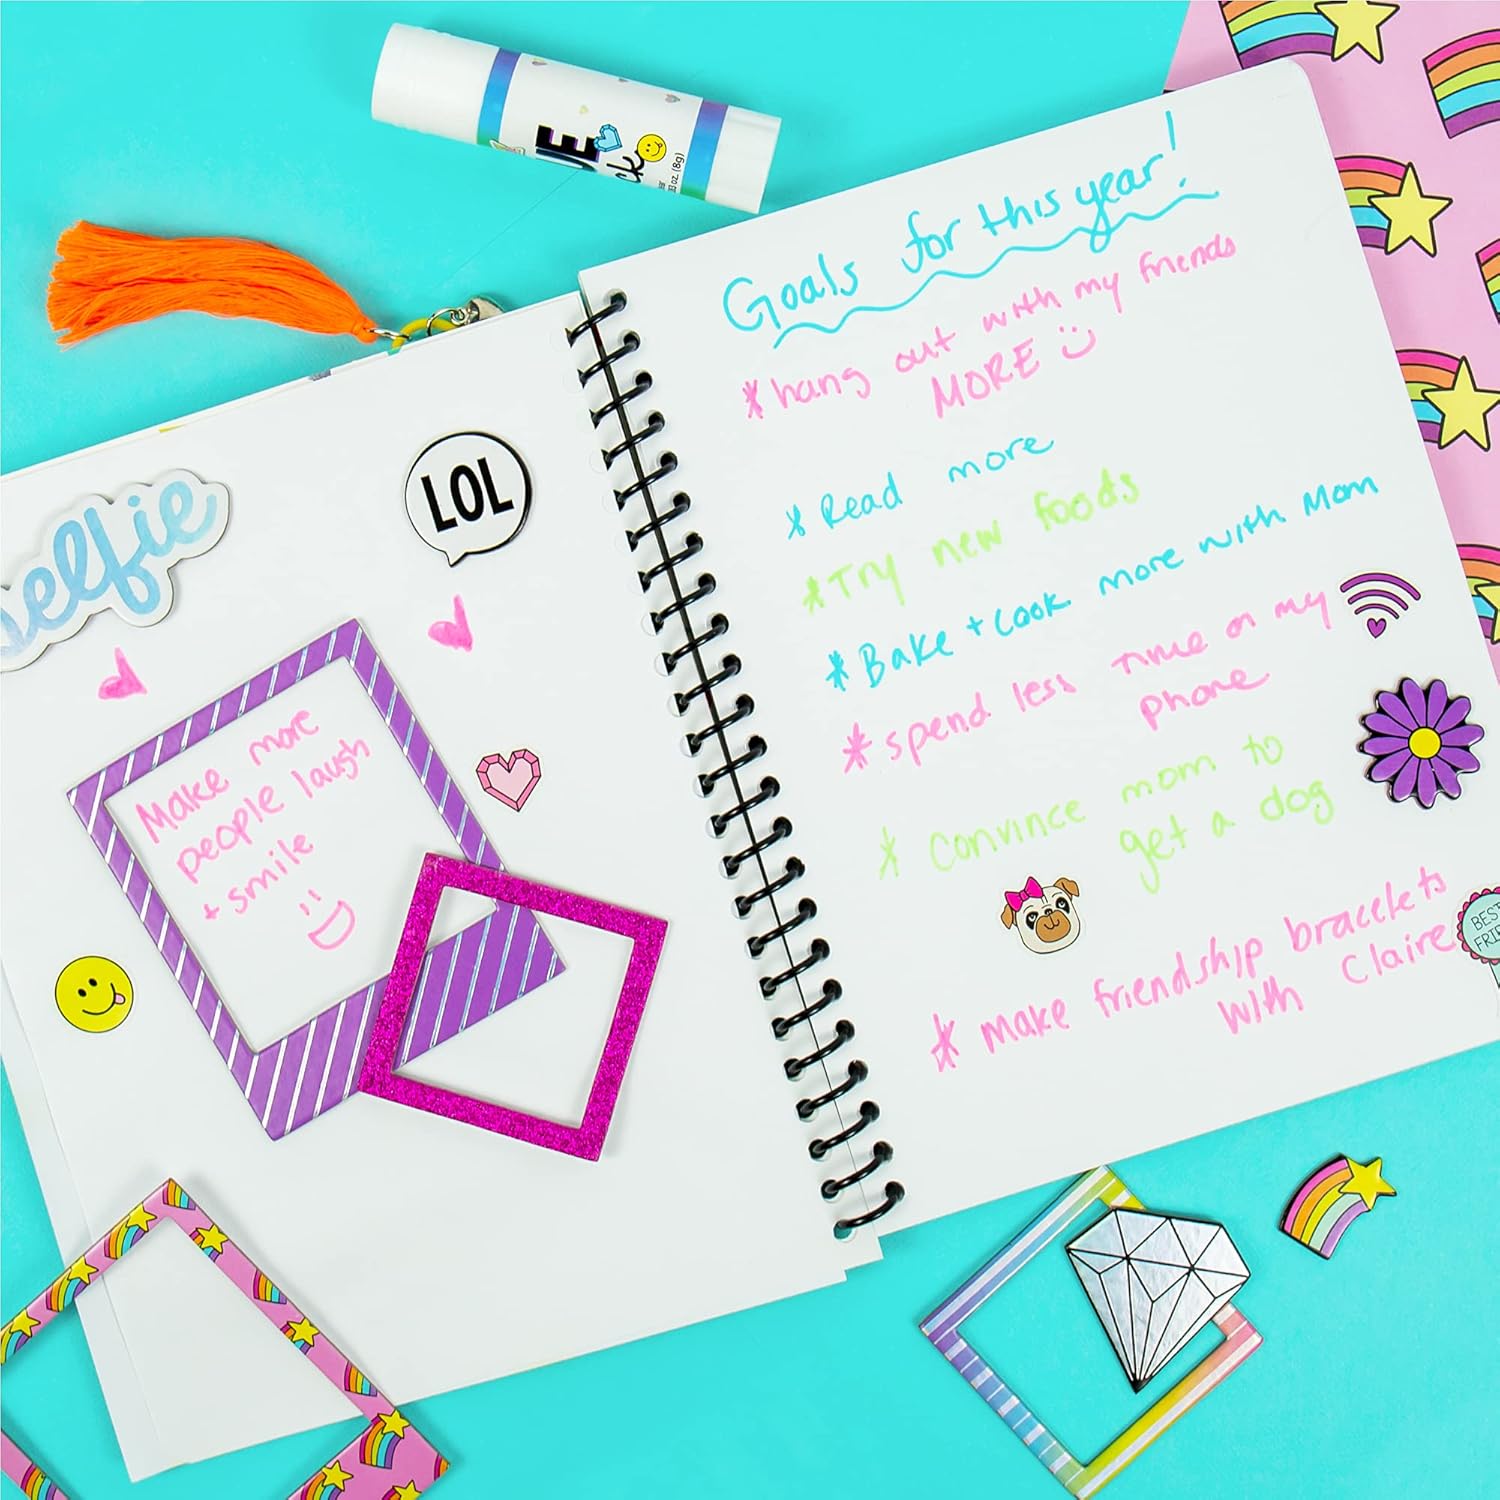 selfie
LOL
Make more
people laugh
+ smile
Goals for this year!
* hang out with my friends
MORE
* Read more
* Try new foods
* Bake + cook more with Mom
* spend less time on my
phone
* Convince mom to
get a dog
* make friendship bracelets
with Claire
BEST